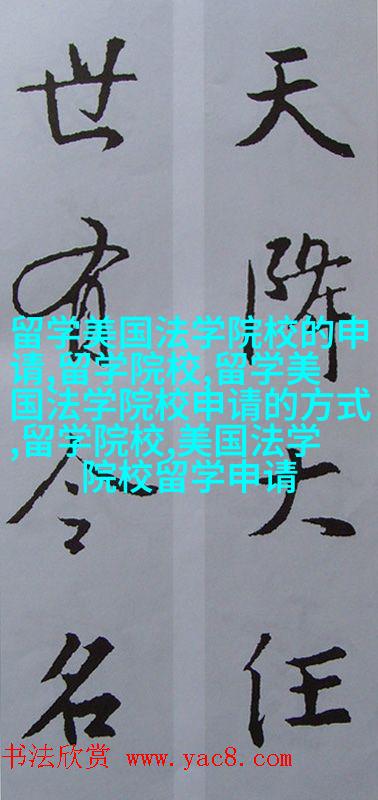 天降大任
世有令名
留学美国法学院校的申
请,留学院校,留学美
国法学院校申请的方式
,留学院校,美国法学
院校留学申请
书法欣赏 www.yac8.com